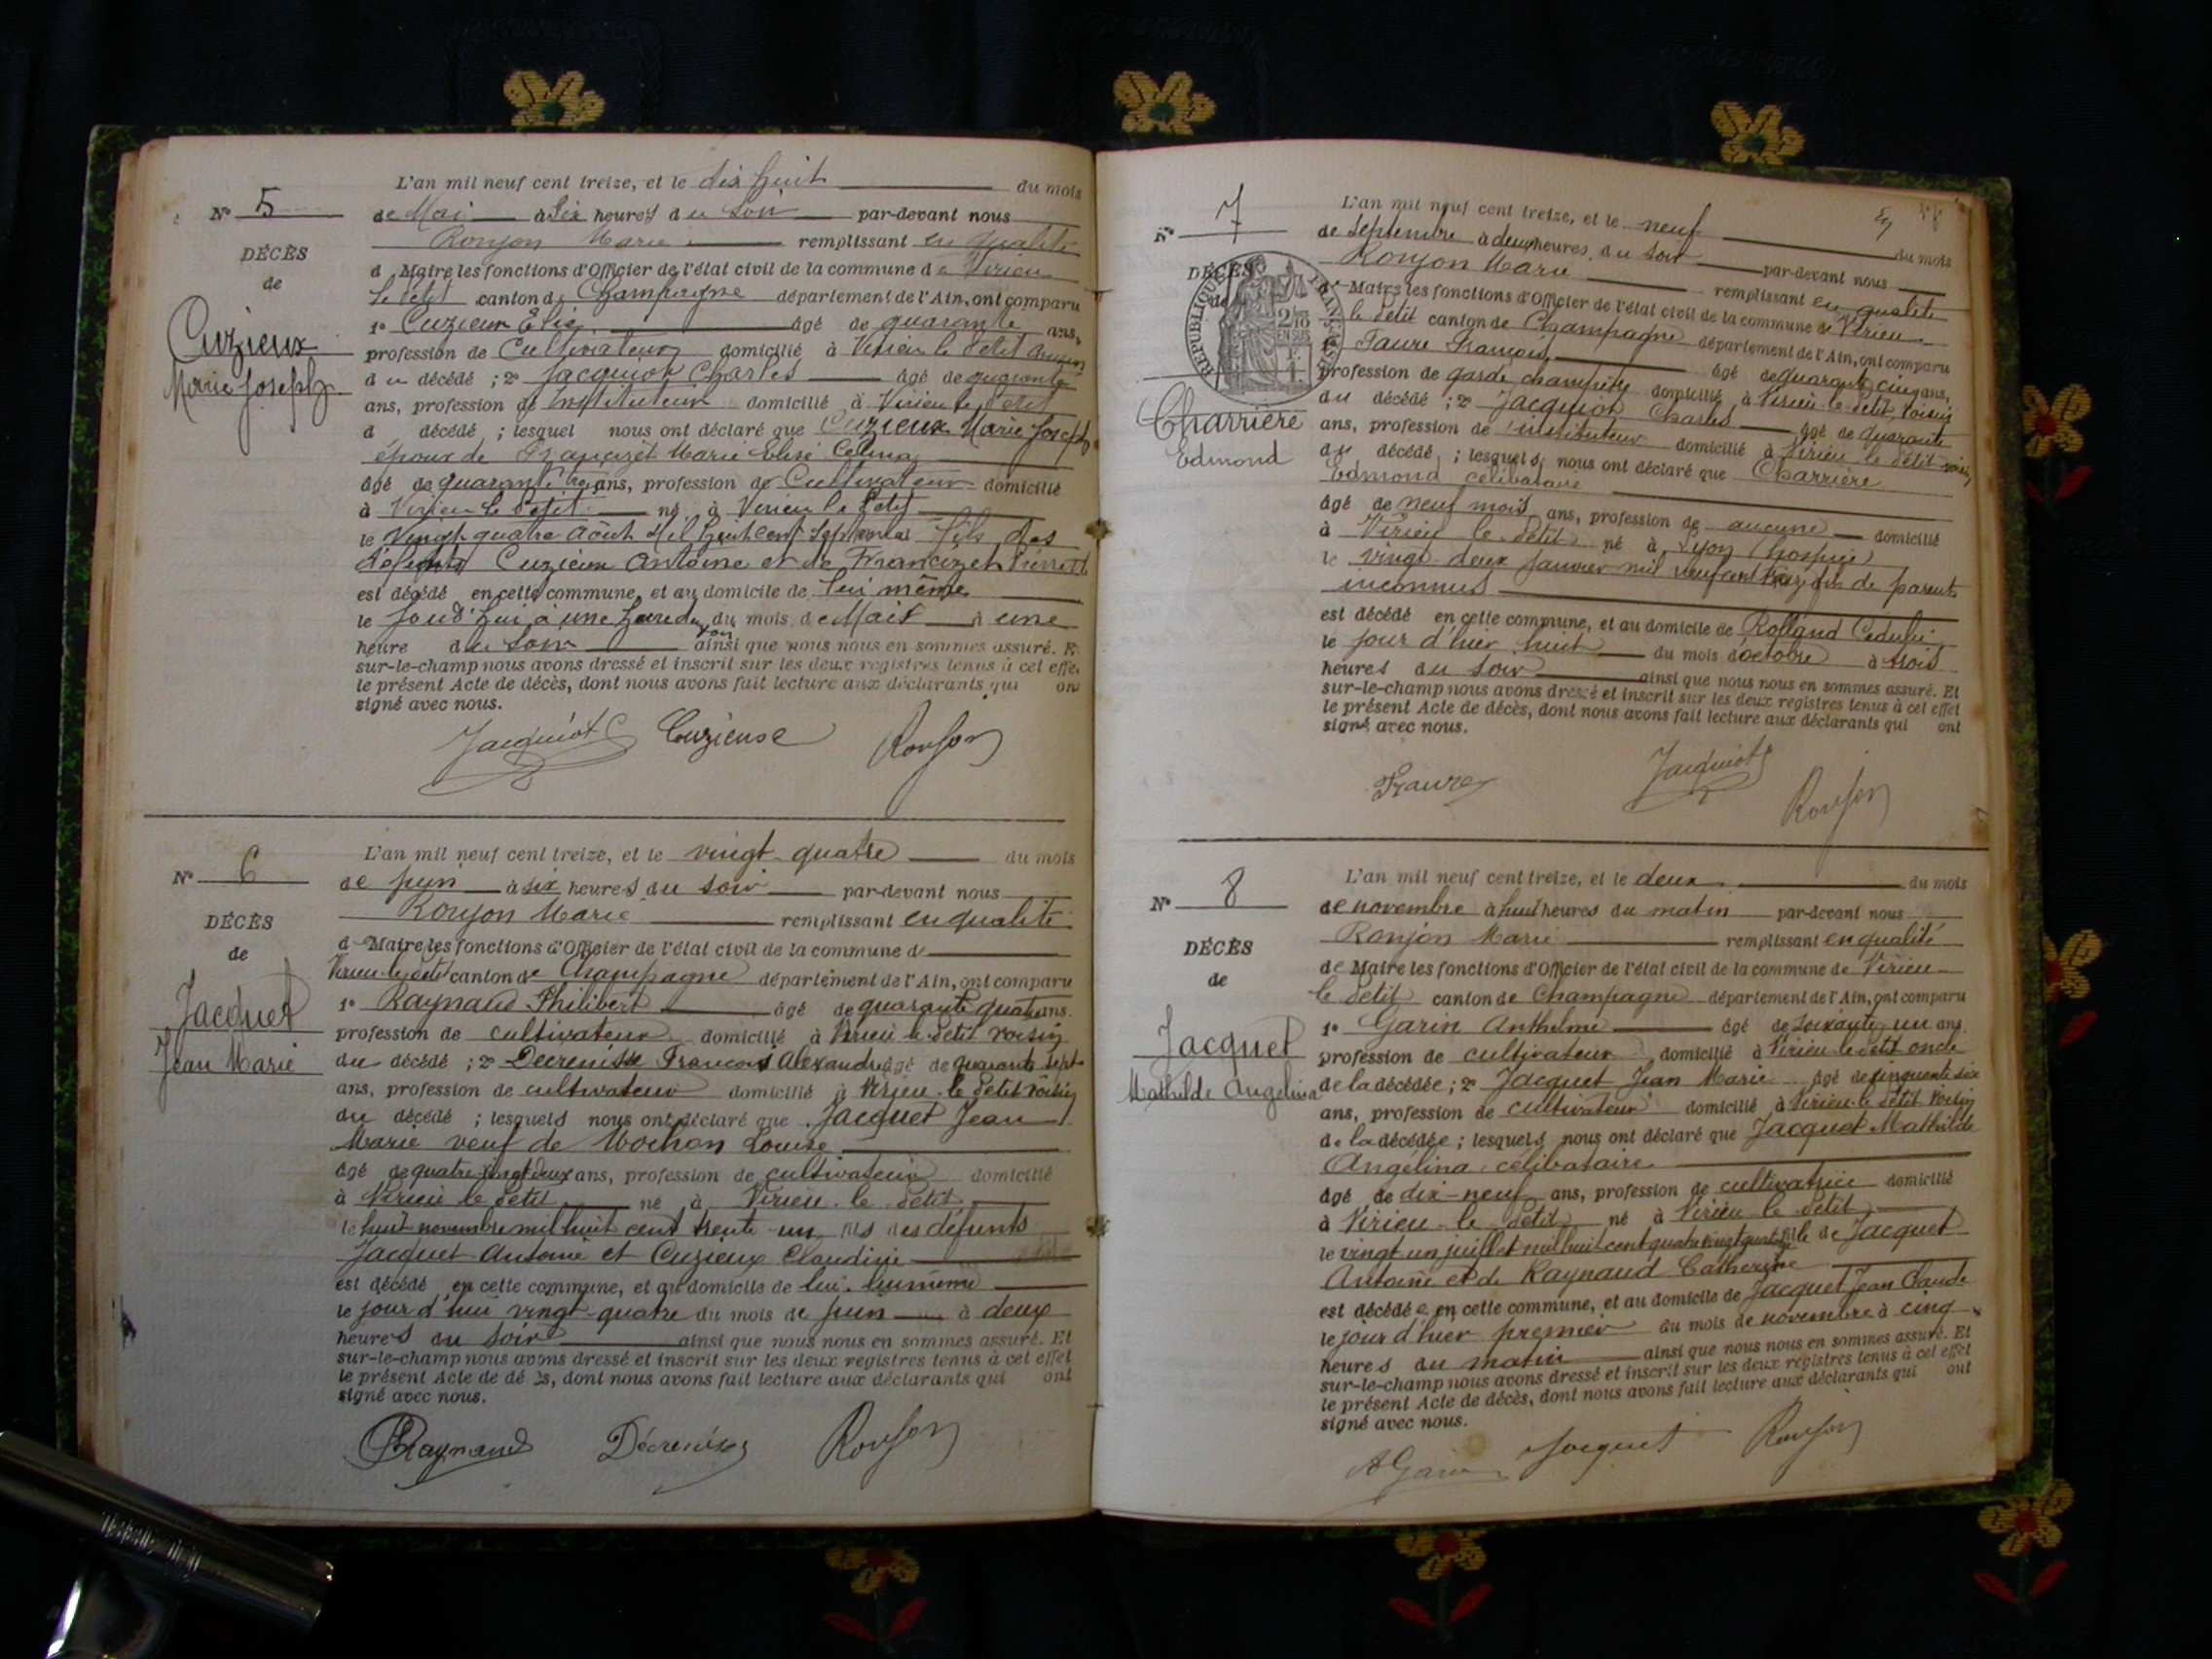 L'an mil neuf cent treize, et le dix huit du mois
N° 5
de Mai à Six heures du Soir par-devant nous
Roujon Marie remplissant en qualité
DÉCÈS
d Maire les fonctions d'Officier de l'état civil de la commune de Virieu
de
le Petit canton de Champagne département de l'Ain, ont comparu
Cuzieux
1° Cuzieux Elie âgé de quarante ans,
profession de Cultivateur domicilié à Virieu le Petit
Marie Joseph
du décédé ; 2° Jacquiot Charles âgé de quarante
ans, profession de Instituteur domicilié à Virieu le Petit
d décédé ; lesquel nous ont déclaré que Cuzieux Marie Joseph
époux de Francizet Marie Elise Célina
âgé de quarante ans, profession de Cultivateur domicilié
à Virieu le Petit né à Virieu le Petit
le Vingt quatre Août Mil huit cent Septante fils des
défunts Cuzieux Antoine et de Francizet
est décédé en cette commune, et au domicile de lui même
le à une heure du mois de Mai à une
heure du Soir ainsi que nous nous en sommes assuré. E
sur-le-champ nous avons dressé et inscrit sur les deux registres tenus à cet effe
le présent Acte de décès, dont nous avons fait lecture aux déclarants qui on
signé avec nous.
Jacquiot C Cuzieuse Roujon
L'an mil neuf cent treize, et le vingt-quatre du mois
N° 6
de juin à six heures du soir par-devant nous
Roujon Marie remplissant en qualité
DÉCÈS
d Maire les fonctions d'Officier de l'état civil de la commune de
de
Virieu-le-Petit canton de Champagne département de l'Ain, ont comparu
Jacquet
1° Raynaud Philibert âgé de quarante quatre ans.
profession de cultivateur domicilié à Virieu le Petit voisin
Jean Marie
du décédé ; 2° Decrenisse François Alexandre âgé de quarante sept
ans, profession de cultivateur domicilié à Virieu-le-Petit voisin
du décédé ; lesquels nous ont déclaré que Jacquet Jean
Marie veuf de Mochon Louise
âgé de quatre vingt deux ans, profession de cultivateur domicilié
à Virieu le Petit né à Virieu-le-Petit
le huit novembre mil huit cent trente-un fils des défunts
Jacquet Antoine et Cuzieux Claudine
est décédé en cette commune, et au domicile de lui-même
le jour d'hui vingt-quatre du mois de juin à deux
heures du soir ainsi que nous nous en sommes assuré. Et
sur-le-champ nous avons dressé et inscrit sur les deux registres tenus à cet effet
le présent Acte de dé s, dont nous avons fait lecture aux déclarants qui ont
signé avec nous.
Raynaud Décrenisse Roujon
L'an mil neuf cent treize, et le neuf du mois
N° 7
de Septembre à deux heures du soir par-devant nous
Roujon Marie remplissant en qualité
DÉCÈS
de
RÉPUBLIQUE FRANÇAISE
de Maire les fonctions d'Officier de l'état civil de la commune de Virieu
le Petit canton de Champagne département de l'Ain, ont comparu
1° Faure François âgé de quarante cinq ans,
profession de garde champêtre domicilié à Virieu-le-Petit voisin
Charrière
du décédé ; 2° Jacquiot Charles âgé de quarante
ans, profession de instituteur domicilié à Virieu le Petit voisin
Edmond
du décédé ; lesquels nous ont déclaré que Charrière
Edmond célibataire
âgé de neuf mois ans, profession de aucune domicilié
à Virieu le Petit né à Lyon (hospice)
le vingt-deux Janvier mil neuf cent treize fils de parents
inconnus
est décédé en cette commune, et au domicile de Rolland
le jour d'hier huit du mois d'octobre à trois
heures du soir ainsi que nous nous en sommes assuré. Et
sur-le-champ nous avons dressé et inscrit sur les deux registres tenus à cet effet
le présent Acte de décès, dont nous avons fait lecture aux déclarants qui ont
signé avec nous.
Faure Jacquiot Roujon
L'an mil neuf cent treize, et le deux du mois
N° 8
de novembre à huit heures du matin par-devant nous
Roujon Marie remplissant en qualité
DÉCÈS
de Maire les fonctions d'Officier de l'état civil de la commune de Virieu
de
le Petit canton de Champagne département de l'Ain, ont comparu
Jacquet
1° Garin Anthelme âgé de soixante un ans.
profession de cultivateur domicilié à Virieu-le-Petit oncle
Mathilde Angelina
de la décédée ; 2° Jacquet Jean Marie âgé de cinquante six
ans, profession de cultivateur domicilié à Virieu-le-Petit voisin
de la décédée ; lesquels nous ont déclaré que Jacquet Mathilde
Angélina célibataire
âgé de dix-neuf ans, profession de cultivatrice domicilié
à Virieu-le-Petit né à Virieu le Petit
le vingt un juillet mil huit cent quatre vingt quatorze fille de Jacquet
Antoine et de Raynaud Catherine
est décédée en cette commune, et au domicile de Jacquet Jean Claude
le jour d'hier premier du mois de novembre à cinq
heures du matin ainsi que nous nous en sommes assuré. Et
sur-le-champ nous avons dressé et inscrit sur les deux registres tenus à cet effet
le présent Acte de décès, dont nous avons fait lecture aux déclarants qui ont
signé avec nous.
A Garin Jacquet Roujon